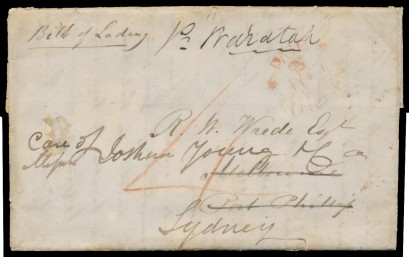 Bill of Lading
Pr "Waratah"
R. N. Wrede Esqr
Care of
Messrs Joshua Young & Co
Melbourne
Port Phillip
Sydney
4